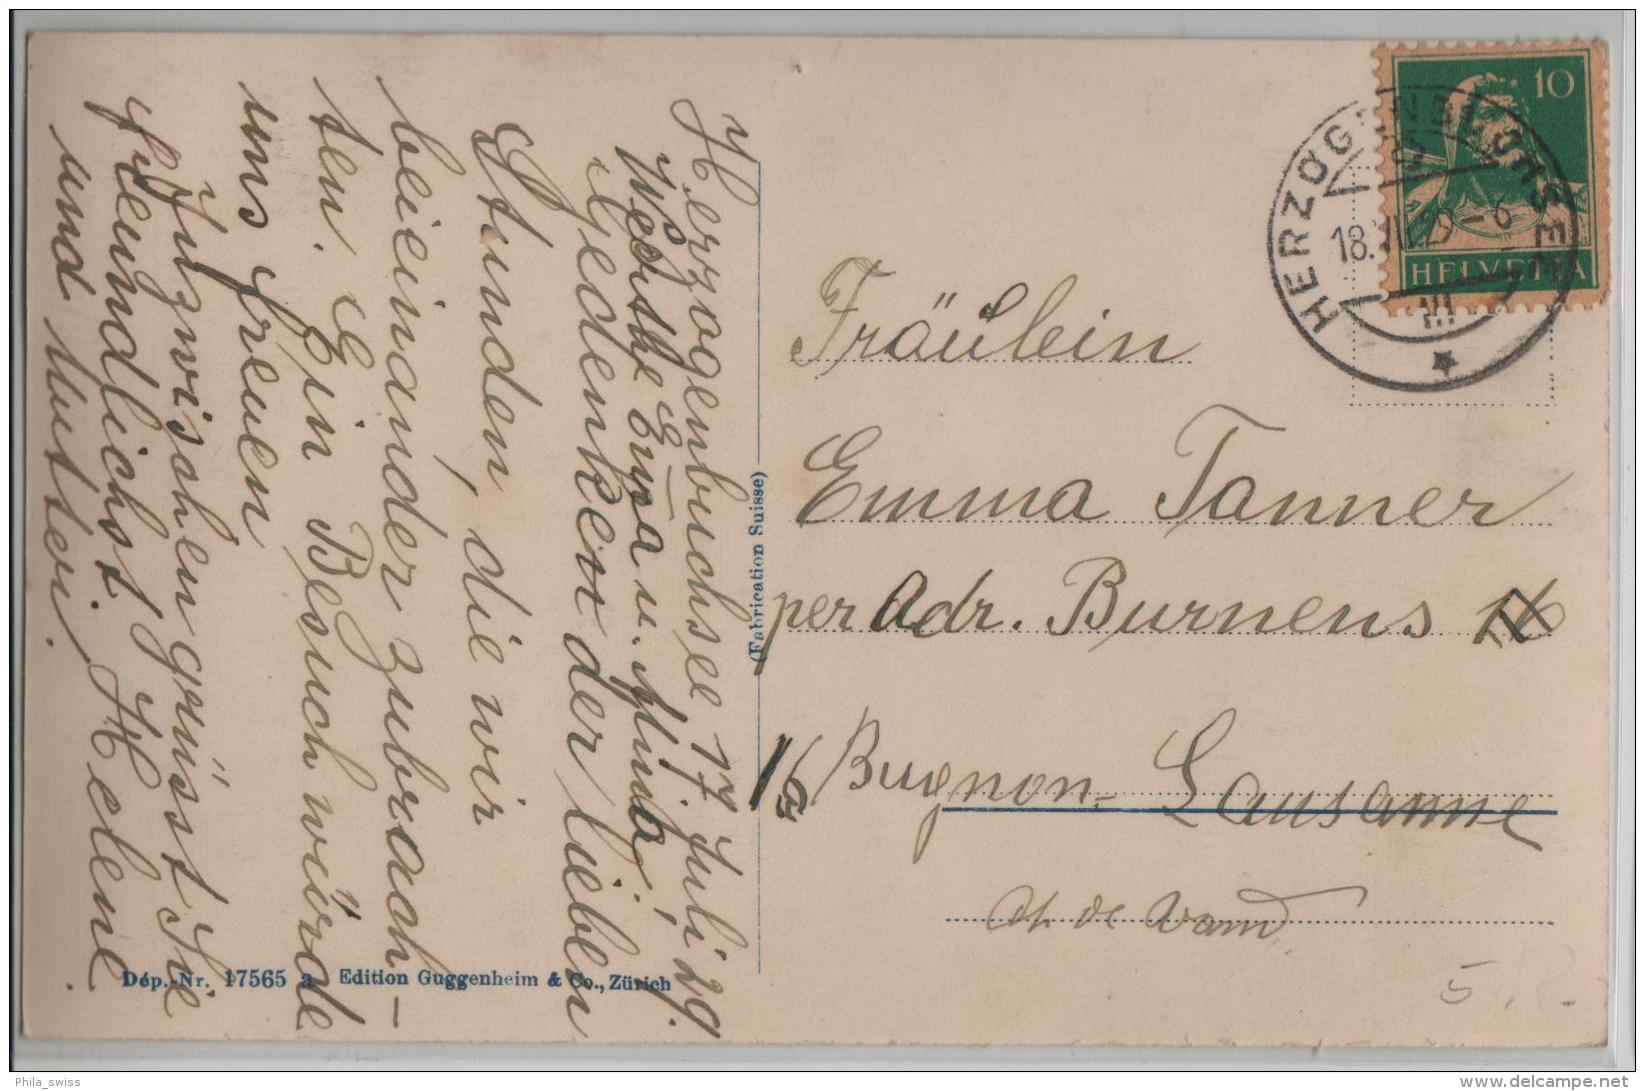 Herzogenbuchsee 17 Juli 29.
Werthe Emma u. Mina,
Gedenken der lieben
Stunden, die wir
beieinander zubrach-
ten. Ein Besuch würde
uns freuen
Inzwischen grüsst Sie
freundlichst Helene
und Mutter.
(Fabrication Suisse)
Dép.-Nr. 17565 a Edition Guggenheim & Co., Zürich
10
HELVETIA
HERZOGENBUCHSEE
18.VII.29-6
Fräulein
Emma Tanner
per Adr. Burnens
16 Bugnon-Lausanne
Phila_swiss
www.delcampe.net